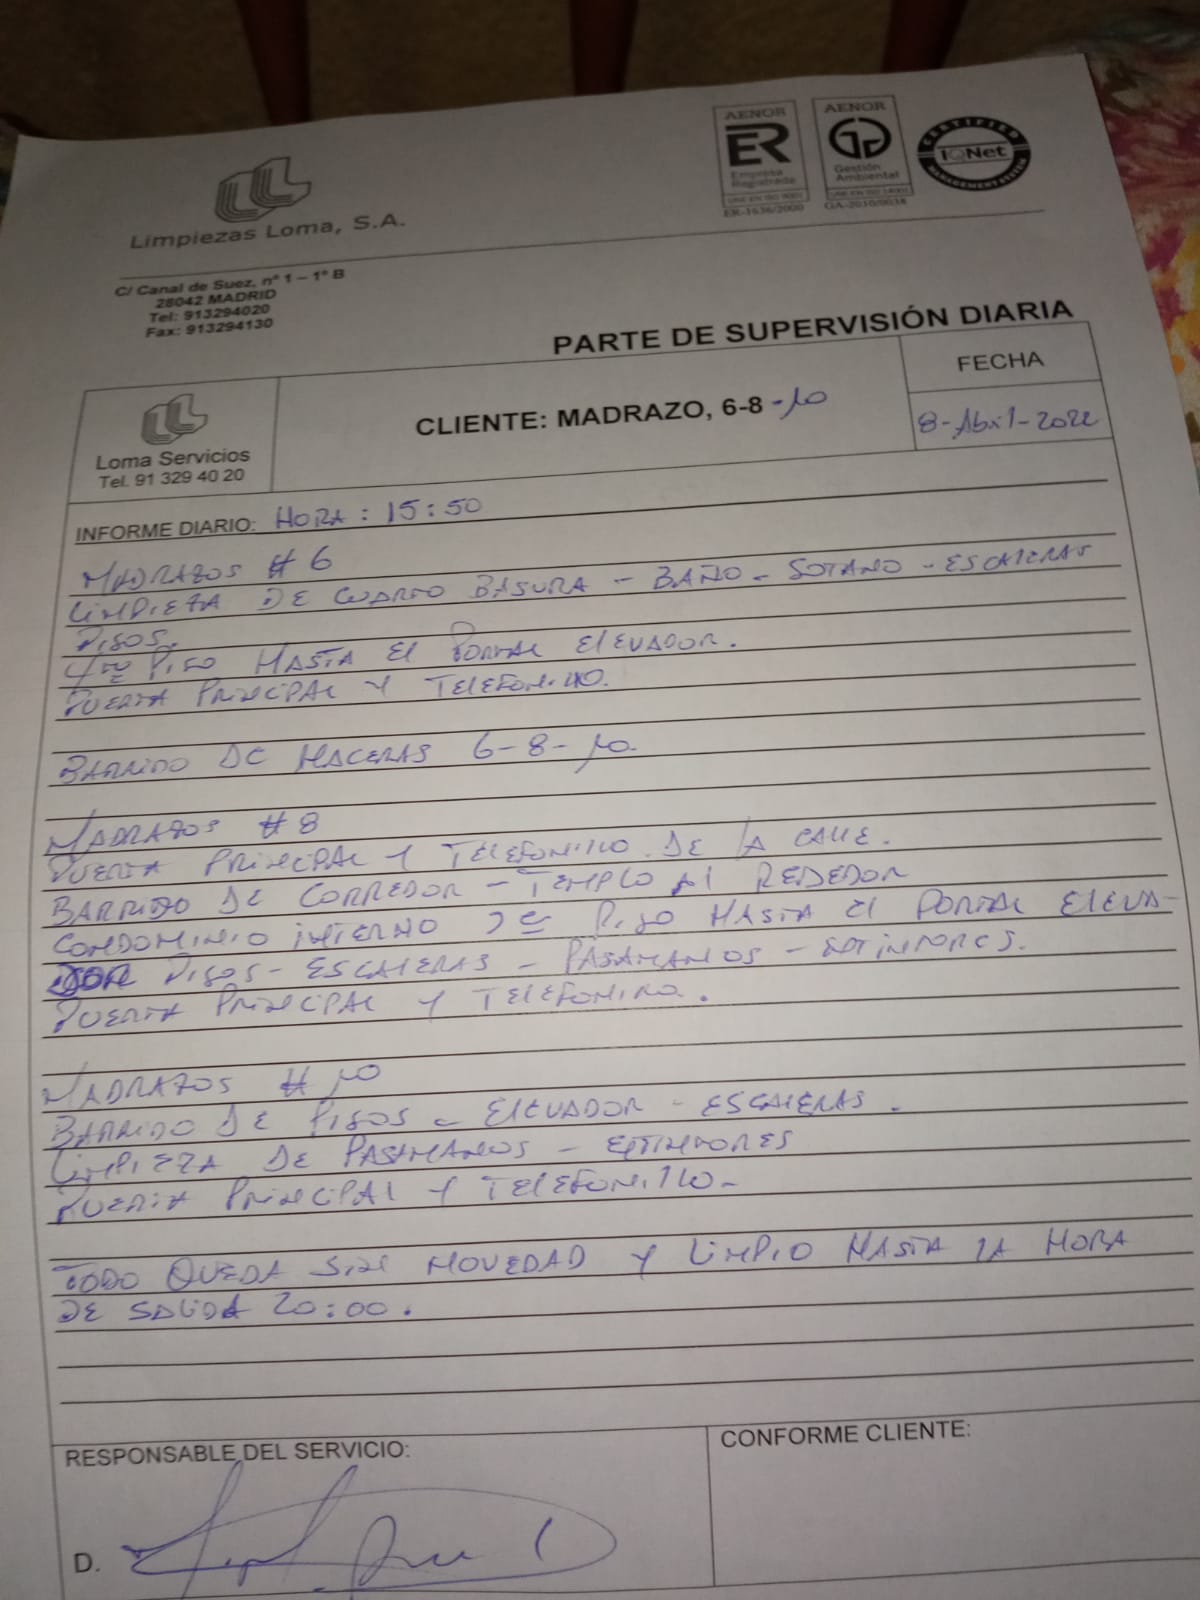 LL
Limpiezas Loma, S.A.
AENOR
ER
Empresa
Registrada
UNE-EN ISO 9001
ER-1636/2000
AENOR
Gestión
Ambiental
UNE-EN ISO 14001
GA-2010/0038
CERTIFIED
IQNet
MANAGEMENT SYSTEM
C/ Canal de Suez, nº 1 – 1º B
28042 MADRID
Tel: 913294020
Fax: 913294130
PARTE DE SUPERVISIÓN DIARIA
Loma Servicios
Tel. 91 329 40 20
CLIENTE: MADRAZO, 6-8 -10
FECHA
8-Abril-2022
INFORME DIARIO: HORA: 15:50
MADRAZOS # 6
LIMPIEZA DE CUARTO BASURA - BAÑO - SOTANO - ESCALERAS
PISOS.
4to PISO HASTA El PORTAL ElEVADOR.
PUERTA PRINCIPAL Y TELEFONILLO.
BARRIDO DE MACERAS 6-8-10.
MADRAZOS # 8
PUERTA PRINCIPAL Y TELEFONILLO. DE lA CALLE.
BARRIDO DE CORREDOR - TEMPLO Al REDEDOR
CONDOMINIO INTERNO PISO HASTA El PORTAL ELEVA-
DOR PISOS - ESCALERAS - PASAMANOS - EXTINTORES.
PUERTA PRINCIPAL Y TELEFONILLO.
MADRAZOS # 10
BARRIDO DE PISOS - ElEVADOR - ESCALERAS.
LIMPIEZA DE PASAMANOS - EXTINTORES
PUERTA PRINCIPAl Y TELEFONILLO-
TODO QUEDA SIN NOVEDAD Y LIMPIO HASTA lA HORA
DE SALIDA 20:00.
RESPONSABLE DEL SERVICIO:
CONFORME CLIENTE:
D.